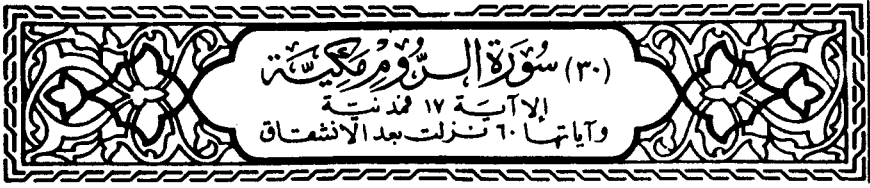 (٣٠) سُورَة الرُّومِ مَكِيَّة
إلا آيَة ١٧ فمدنيّة
وآياتها ٦٠ نزلت بعد الانشقاق